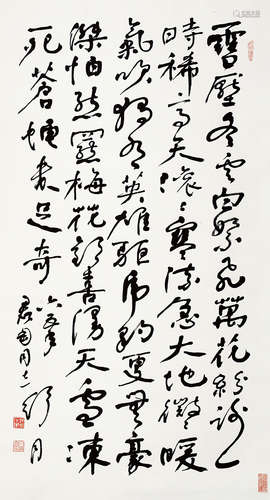 雪壓冬雲白絮飛萬花紛謝一
時稀高天滾〻寒流急大地微〻暖
氣吹獨有英雄驅虎豹更無豪
傑怕熊羆梅花歡喜漫天雪凍
死蒼蠅未足奇